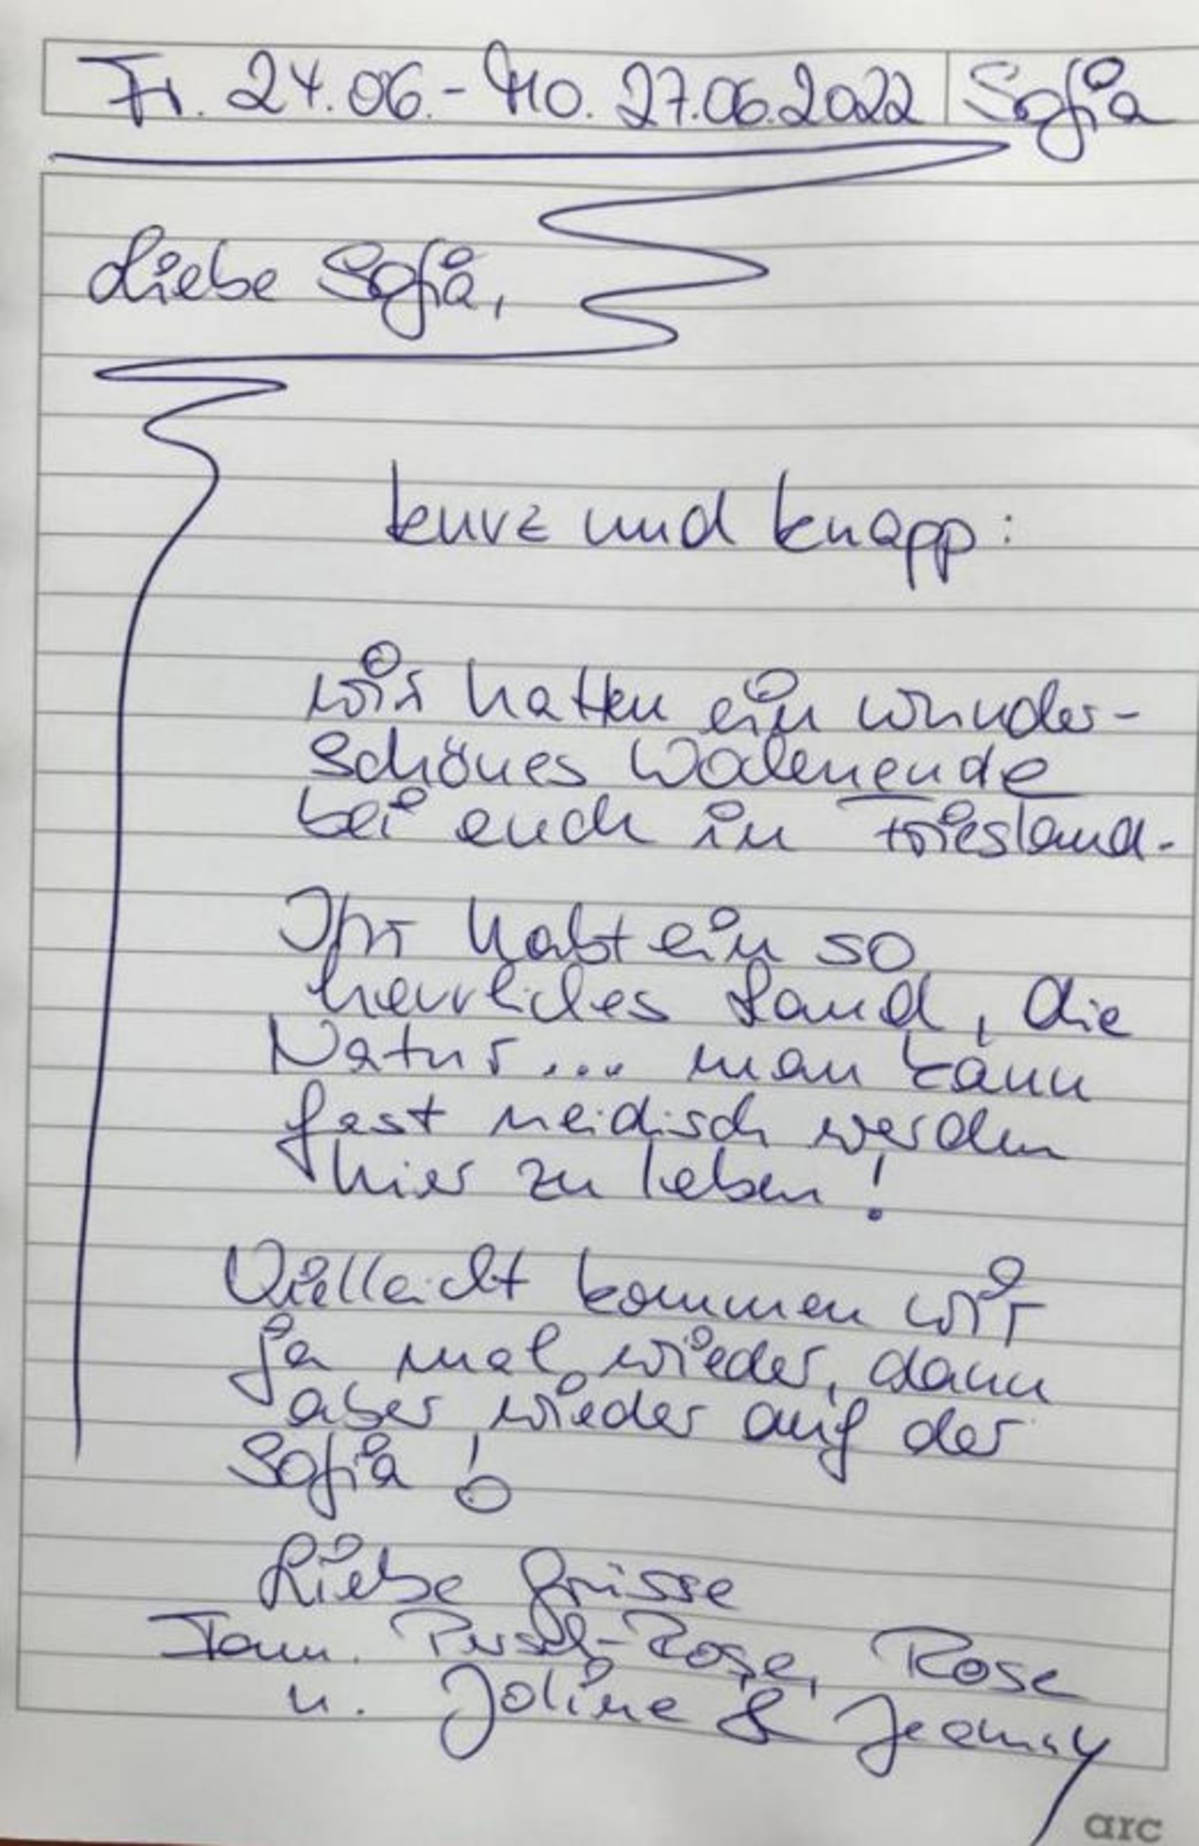 Fr. 24.06.- Mo. 27.06.2022 Sofia
Liebe Sofia,
kurz und knapp:
wir hatten ein wunder-
schönes Wochenende
bei euch in Friesland.
Ihr habt ein so
herrliches Land, die
Natur... man kann
fast neidisch werden
hier zu leben!
Vielleicht kommen wir
ja mal wieder, dann
aber wieder auf der
Sofia!
Liebe Grüsse
Fam. Rose, Rose
u. Joline & Jeanny
arc